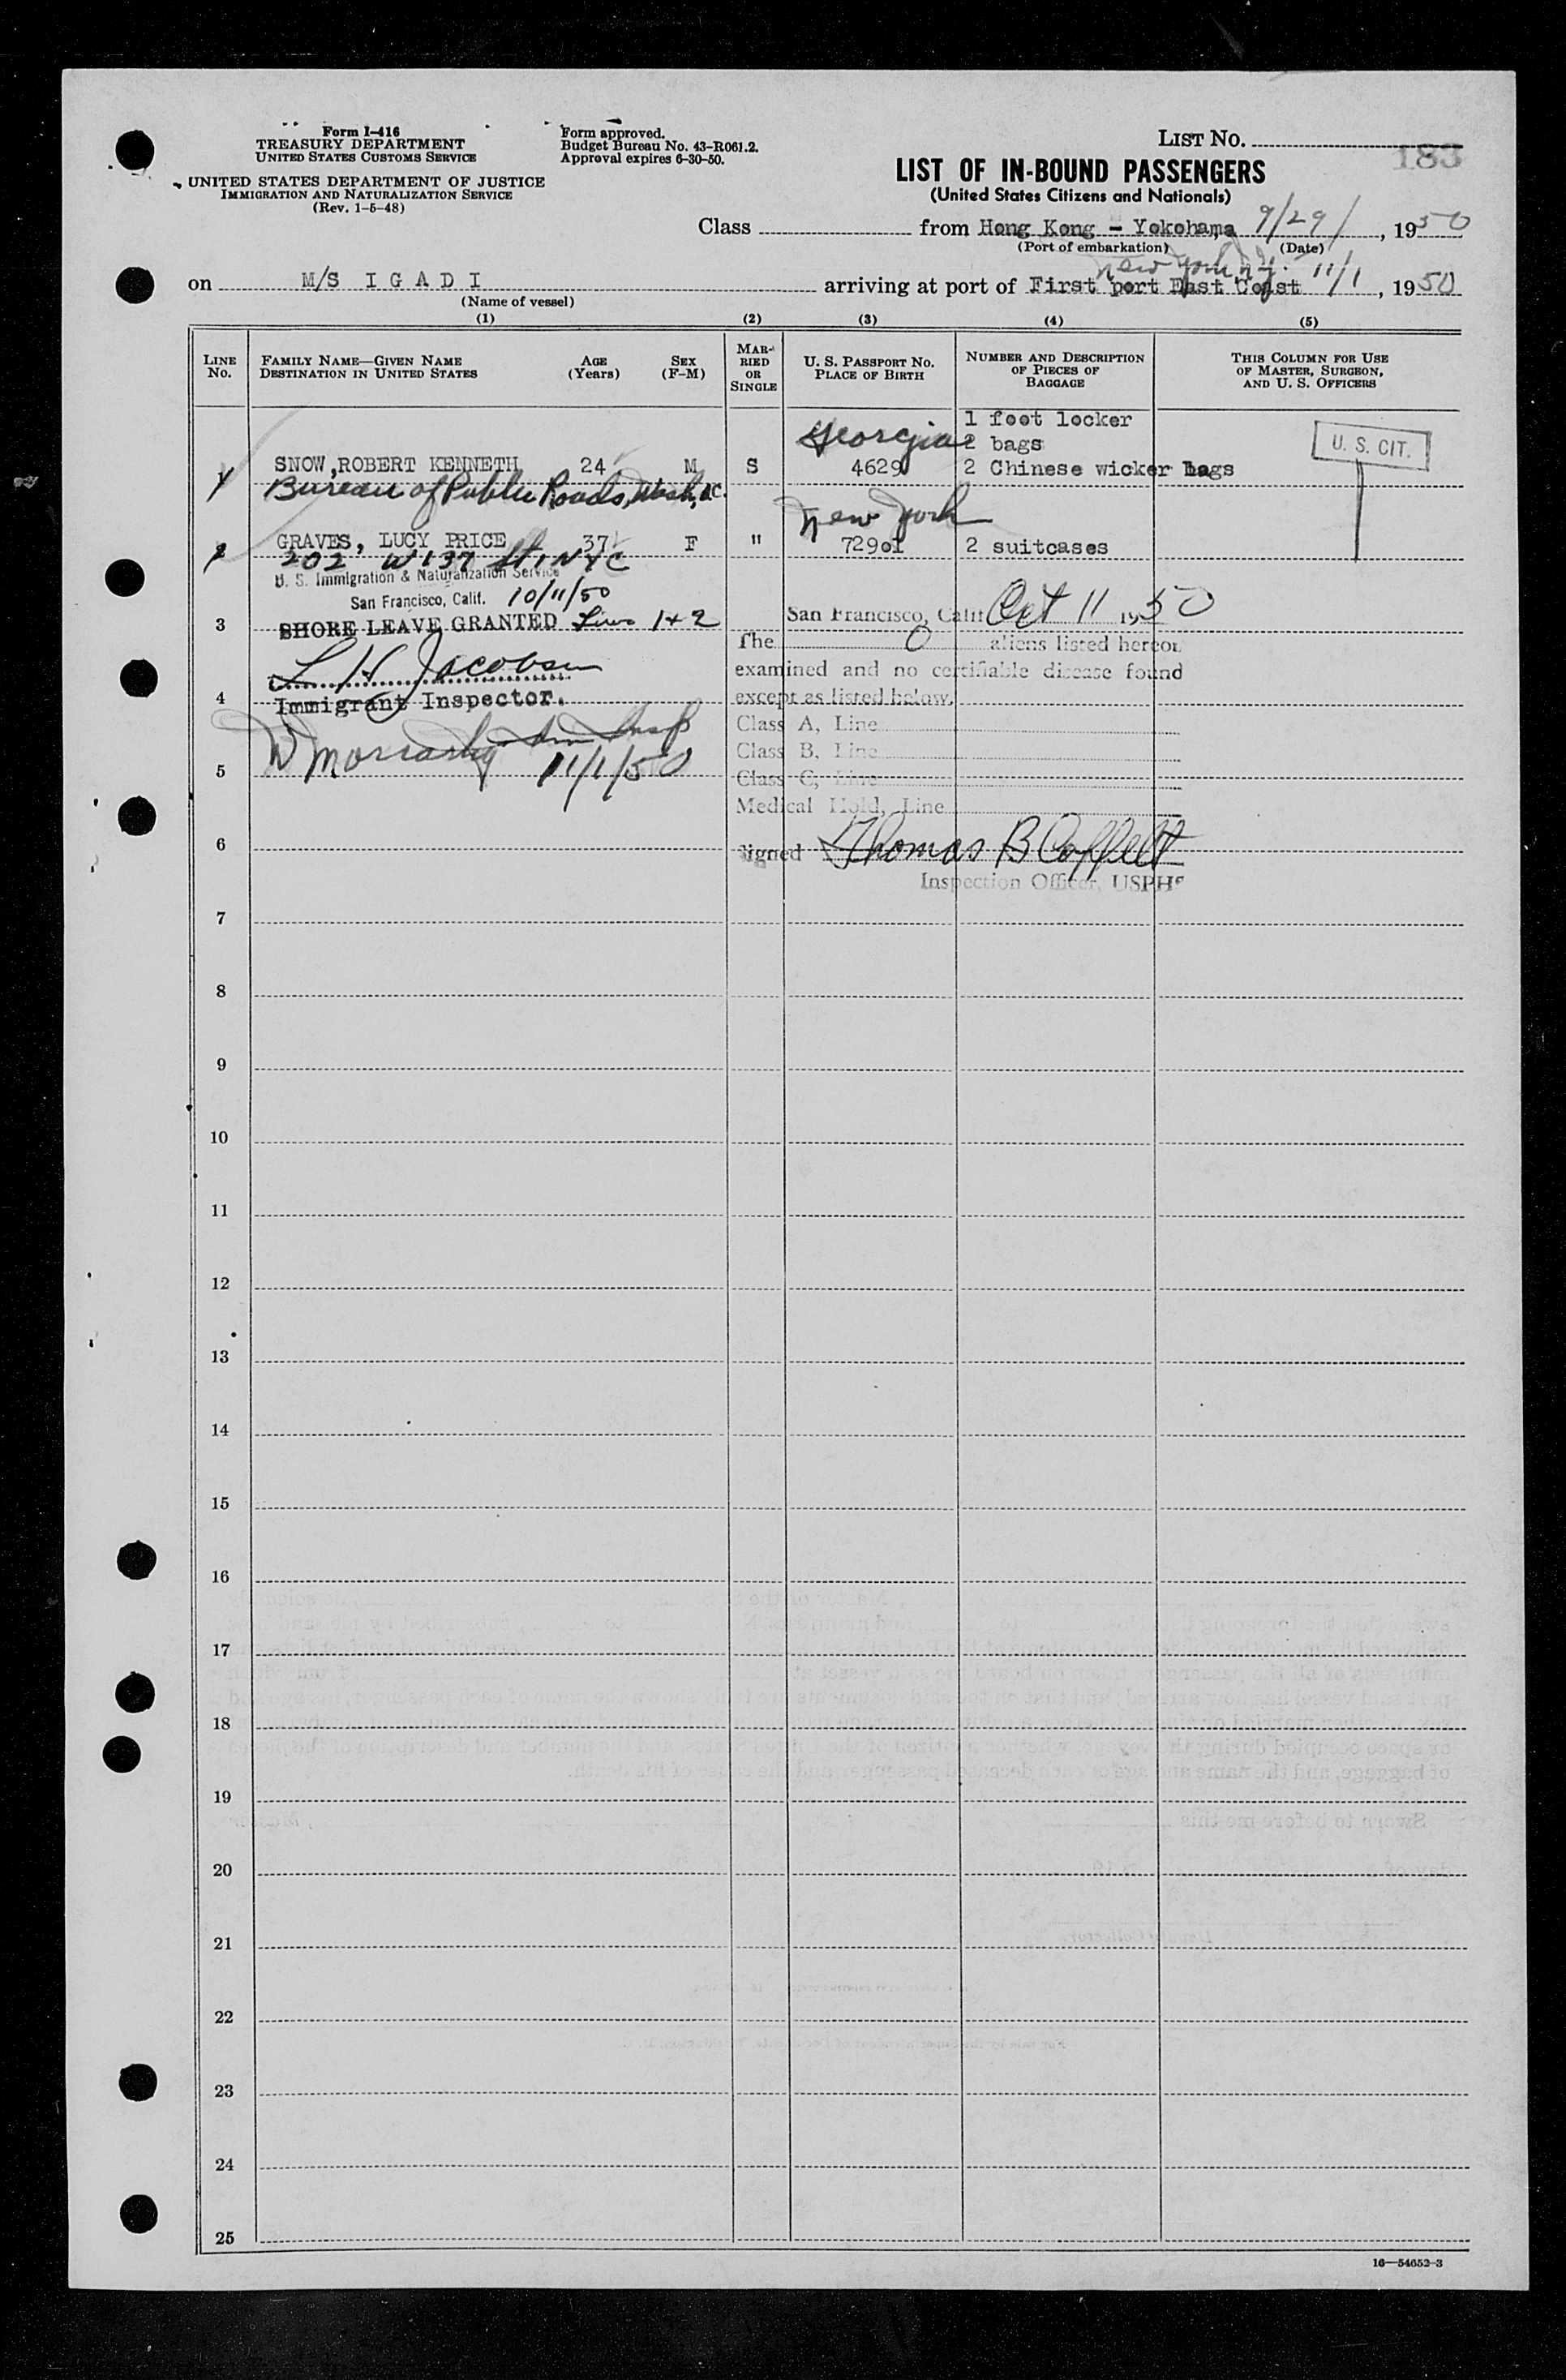 Form I-416
TREASURY DEPARTMENT
UNITED STATES CUSTOMS SERVICE
UNITED STATES DEPARTMENT OF JUSTICE
IMMIGRATION AND NATURALIZATION SERVICE
(Rev. 1-5-48)
Form approved.
Budget Bureau No. 43-R061.2.
Approval expires 6-30-50.
LIST NO.
183
LIST OF IN-BOUND PASSENGERS
(United States Citizens and Nationals)
Class from Hong Kong - Yokohama 9/29/, 1950
(Port of embarkation) (Date)
New York N.Y.
on M/S I G A D I arriving at port of First port East Coast 11/1, 1950
(Name of vessel)
(1) (2) (3) (4) (5)
LINE NO. FAMILY NAME—GIVEN NAME DESTINATION IN UNITED STATES AGE (Years) SEX (F-M) MARRIED OR SINGLE U. S. PASSPORT NO. PLACE OF BIRTH NUMBER AND DESCRIPTION OF PIECES OF BAGGAGE THIS COLUMN FOR USE OF MASTER, SURGEON, AND U. S. OFFICERS
1 foot locker
Georgia 2 bags U. S. CIT.
1 SNOW, ROBERT KENNETH 24 M S 4629 2 Chinese wicker bags
Bureau of Public Roads, Wash, D.C.
New York
2 GRAVES, LUCY PRICE 37 F " 72901 2 suitcases
202 W 137 St, NYC
U. S. Immigration & Naturalization Service
San Francisco, Calif. 10/11/50
3 SHORE LEAVE GRANTED Lines 1+2
L H Jacobsen
4 Immigrant Inspector.
5 11/1/50
San Francisco, Calif Oct 11 1950
The 0 aliens listed hereon
examined and no certifiable disease found
except as listed below.
Class A, Line
Class B, Line
Class C, Line
Medical Hold, Line
6 Signed Thomas B Coffelt
Inspection Officer, USPHS
7
8
9
10
11
12
13
14
15
16
17
18
19
20
21
22
23
24
25
16—54652-3